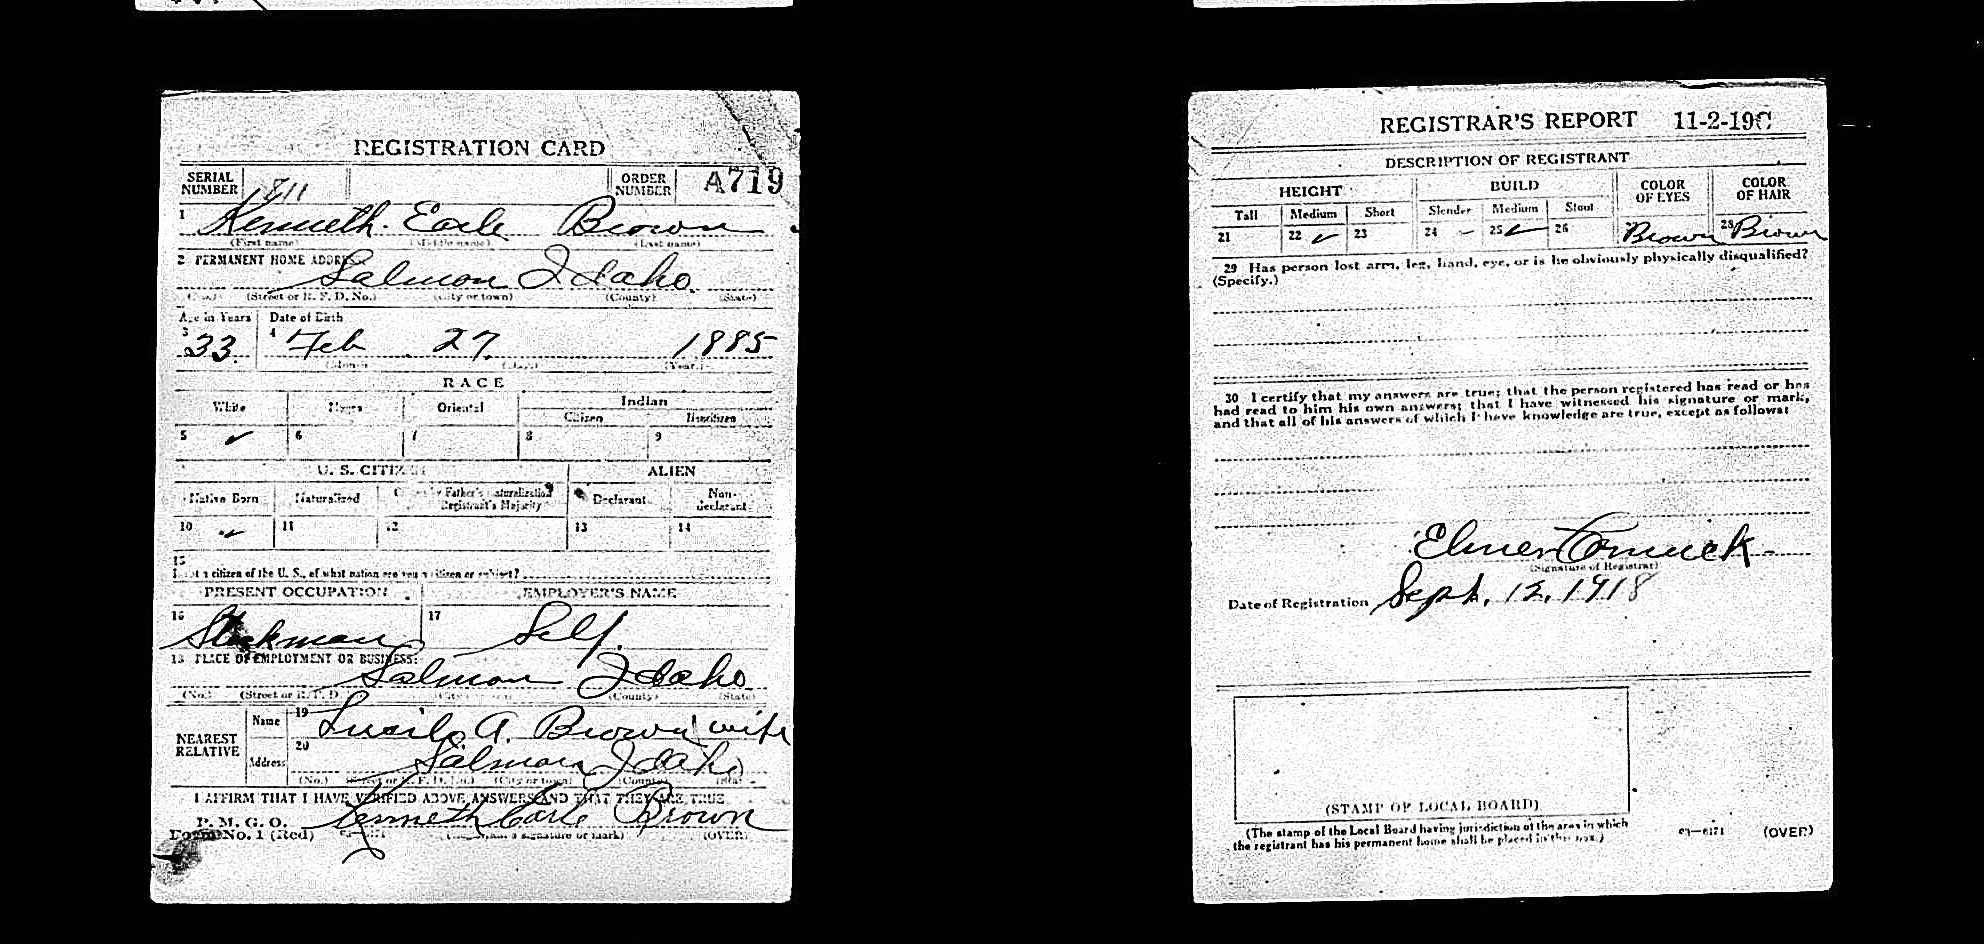 REGISTRATION CARD
SERIAL NUMBER 1811 ORDER NUMBER A719
1 Kenneth Earle Brown
(First name) (Middle name) (Last name)
2 PERMANENT HOME ADDRESS
Salmon Idaho.
(No.) (Street or R. F. D. No.) (City or town) (County) (State)
Age in Years Date of Birth
3 33. 4 Feb 27. 1885
(Month) (Day) (Year)
RACE
White Negro Oriental Indian
Citizen Noncitizen
5 ✓ 6 7 8 9
U. S. CITIZEN ALIEN
Native Born Naturalized Father's Naturalization Registrant's Majority Declarant Non-declarant
10 ✓ 11 12 13 14
15
not a citizen of the U. S., of what nation are you a citizen or subject?
PRESENT OCCUPATION EMPLOYER'S NAME
16 Stockman 17 Self.
18 PLACE OF EMPLOYMENT OR BUSINESS:
Salmon Idaho
(No.) (Street or R. F. D.) (County) (State)
NEAREST RELATIVE Name 19 Lucile A. Brown wife
Address 20 Salmon Idaho
(No.) (Street or R. F. D. No.) (City or town) (County) (State)
I AFFIRM THAT I HAVE VERIFIED ABOVE ANSWERS AND THAT THEY ARE TRUE
P. M. G. O.
Form No. 1 (Red) Kenneth Earle Brown
(Registrant's signature or mark) (OVER)
REGISTRAR'S REPORT 11-2-19C
DESCRIPTION OF REGISTRANT
HEIGHT BUILD COLOR OF EYES COLOR OF HAIR
Tall Medium Short Slender Medium Stout
21 22 ✓ 23 24 – 25 ✓ 26 27 Brown 28 Brown
29 Has person lost arm, leg, hand, eye, or is he obviously physically disqualified?
(Specify.)
30 I certify that my answers are true; that the person registered has read or has
had read to him his own answers; that I have witnessed his signature or mark,
and that all of his answers of which I have knowledge are true, except as follows:
Elmer Cormick
(Signature of Registrar)
Date of Registration Sept. 12, 1918
(STAMP OF LOCAL BOARD)
(The stamp of the Local Board having jurisdiction of the area in which
the registrant has his permanent home shall be placed in this box.)
03—6171 (OVER)